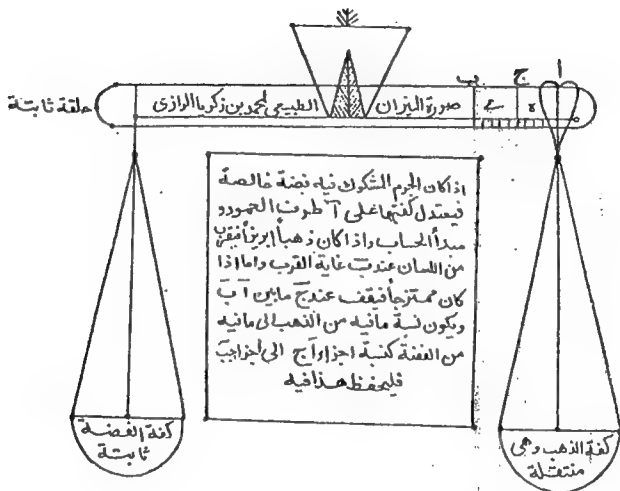 ا
ج
ب
حلقة ثابتة
صورة الميزان الطبيعي لمحمد بن زكريا الرازى
ه
اذا كان الجرم المشكوك فيه فضة خالصة
فيعتدل كفتها على آ طرف العمود و
مبدأ الحساب واذا كان ذهباً إبريزاً فبقرب
من اللسان عند ب غاية القرب واما اذا
كان ممتزجاً فيقف عند ج مابين آ ب
ويكون نسبة مافيه من الذهب الى مافيه
من الفضة كنسبة اجزاء آ ج الى أجزا جب
فليحفظ هذا فيه
كفة الفضة
ثابتة
كفة الذهب وهى
منتقلة